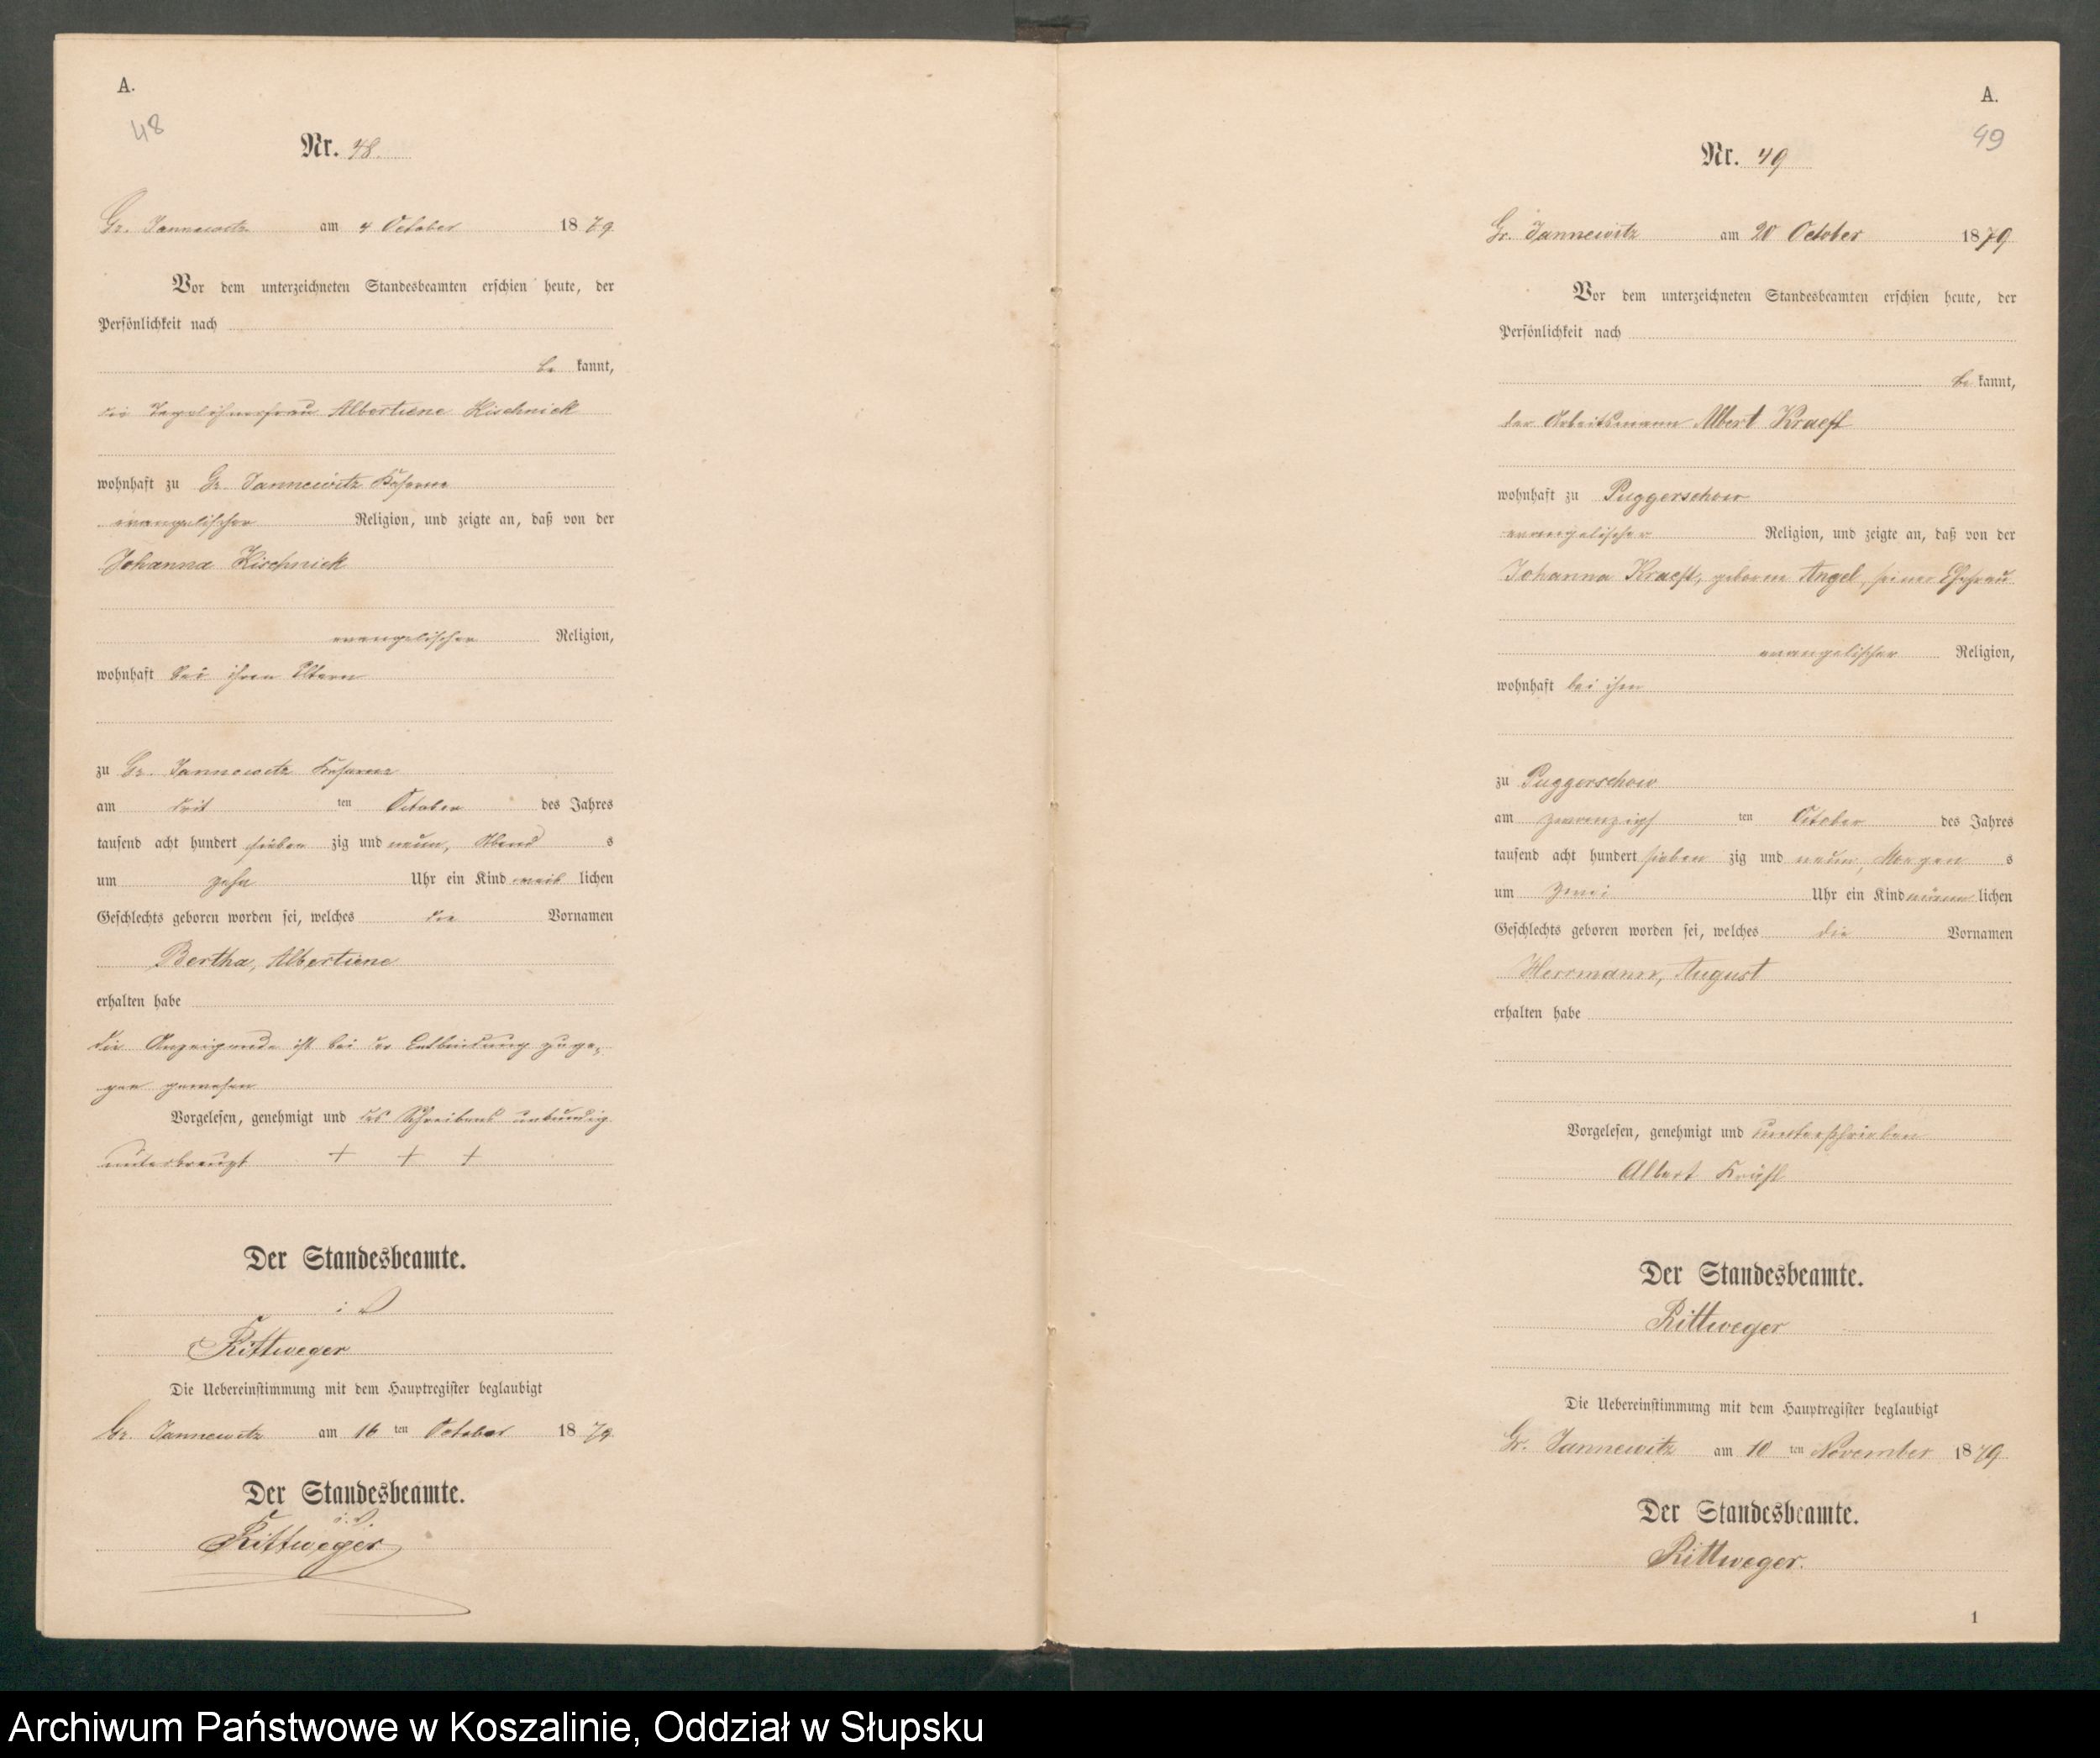 A.
48
Nr. 48.
Gr. Jannewitz am 4 October 1879.
Vor dem unterzeichneten Standesbeamten erschien heute, der
Persönlichkeit nach
be kannt,
die Tagelöhnerfrau Albertiene Kischnick
wohnhaft zu Gr. Jannewitz
evangelischer Religion, und zeigte an, daß von der
Johanna Kischnick
evangelischer Religion,
wohnhaft bei ihren Eltern
zu Gr. Jannewitz
am drit ten October des Jahres
tausend acht hundert sieben zig und neun, Abend s
um zehn Uhr ein Kind weib lichen
Geschlechts geboren worden sei, welches die Vornamen
Bertha, Albertiene
erhalten habe
die Anzeigende ist bei der Entbindung zuge-
gen gewesen
Vorgelesen, genehmigt und des Schreibens unkundig
unterkreuzt + + +
Der Standesbeamte.
i. V.
Rittweger
Die Uebereinstimmung mit dem Hauptregister beglaubigt
Gr. Jannewitz am 16 ten October 1879.
Der Standesbeamte.
i. V.
Rittweger
A.
49
Nr. 49
Gr. Jannewitz am 20 October 1879
Vor dem unterzeichneten Standesbeamten erschien heute, der
Persönlichkeit nach
be kannt,
der Arbeitsmann Albert Kraeft
wohnhaft zu Puggerschow
evangelischer Religion, und zeigte an, daß von der
Johanna Kraeft, geborne Angel, seiner Ehefrau
evangelischer Religion,
wohnhaft bei ihm
zu Puggerschow
am zwanzigs ten October des Jahres
tausend acht hundert sieben zig und neun, Morgen s
um zwei Uhr ein Kind männ lichen
Geschlechts geboren worden sei, welches die Vornamen
Herrmann, August
erhalten habe
Vorgelesen, genehmigt und unterschrieben
Albert Kräft
Der Standesbeamte.
Rittweger
Die Uebereinstimmung mit dem Hauptregister beglaubigt
Gr. Jannewitz am 10 ten November 1879
Der Standesbeamte.
Rittweger.
1
Archiwum Państwowe w Koszalinie, Oddział w Słupsku